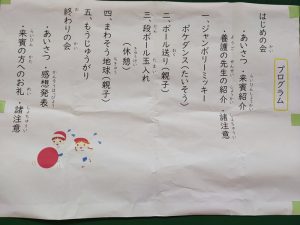 プログラム
はじめの会
・あいさつ・来賓紹介
・養護の先生の紹介・諸注意
一、ジャンボリーミッキー
ポケダンス(たいそう)
二、ボール送り(親子)
三、段ボール玉入れ
(休憩)
四、まわそう地球(親子)
五、もうじゅうがり
終わりの会
・あいさつ・感想発表
・来賓の方へのお礼・諸注意